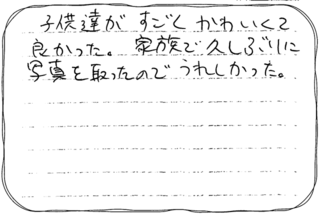 子供達が すごく かわいくて
良かった。 家族で久しぶりに
写真を取ったので うれしかった。